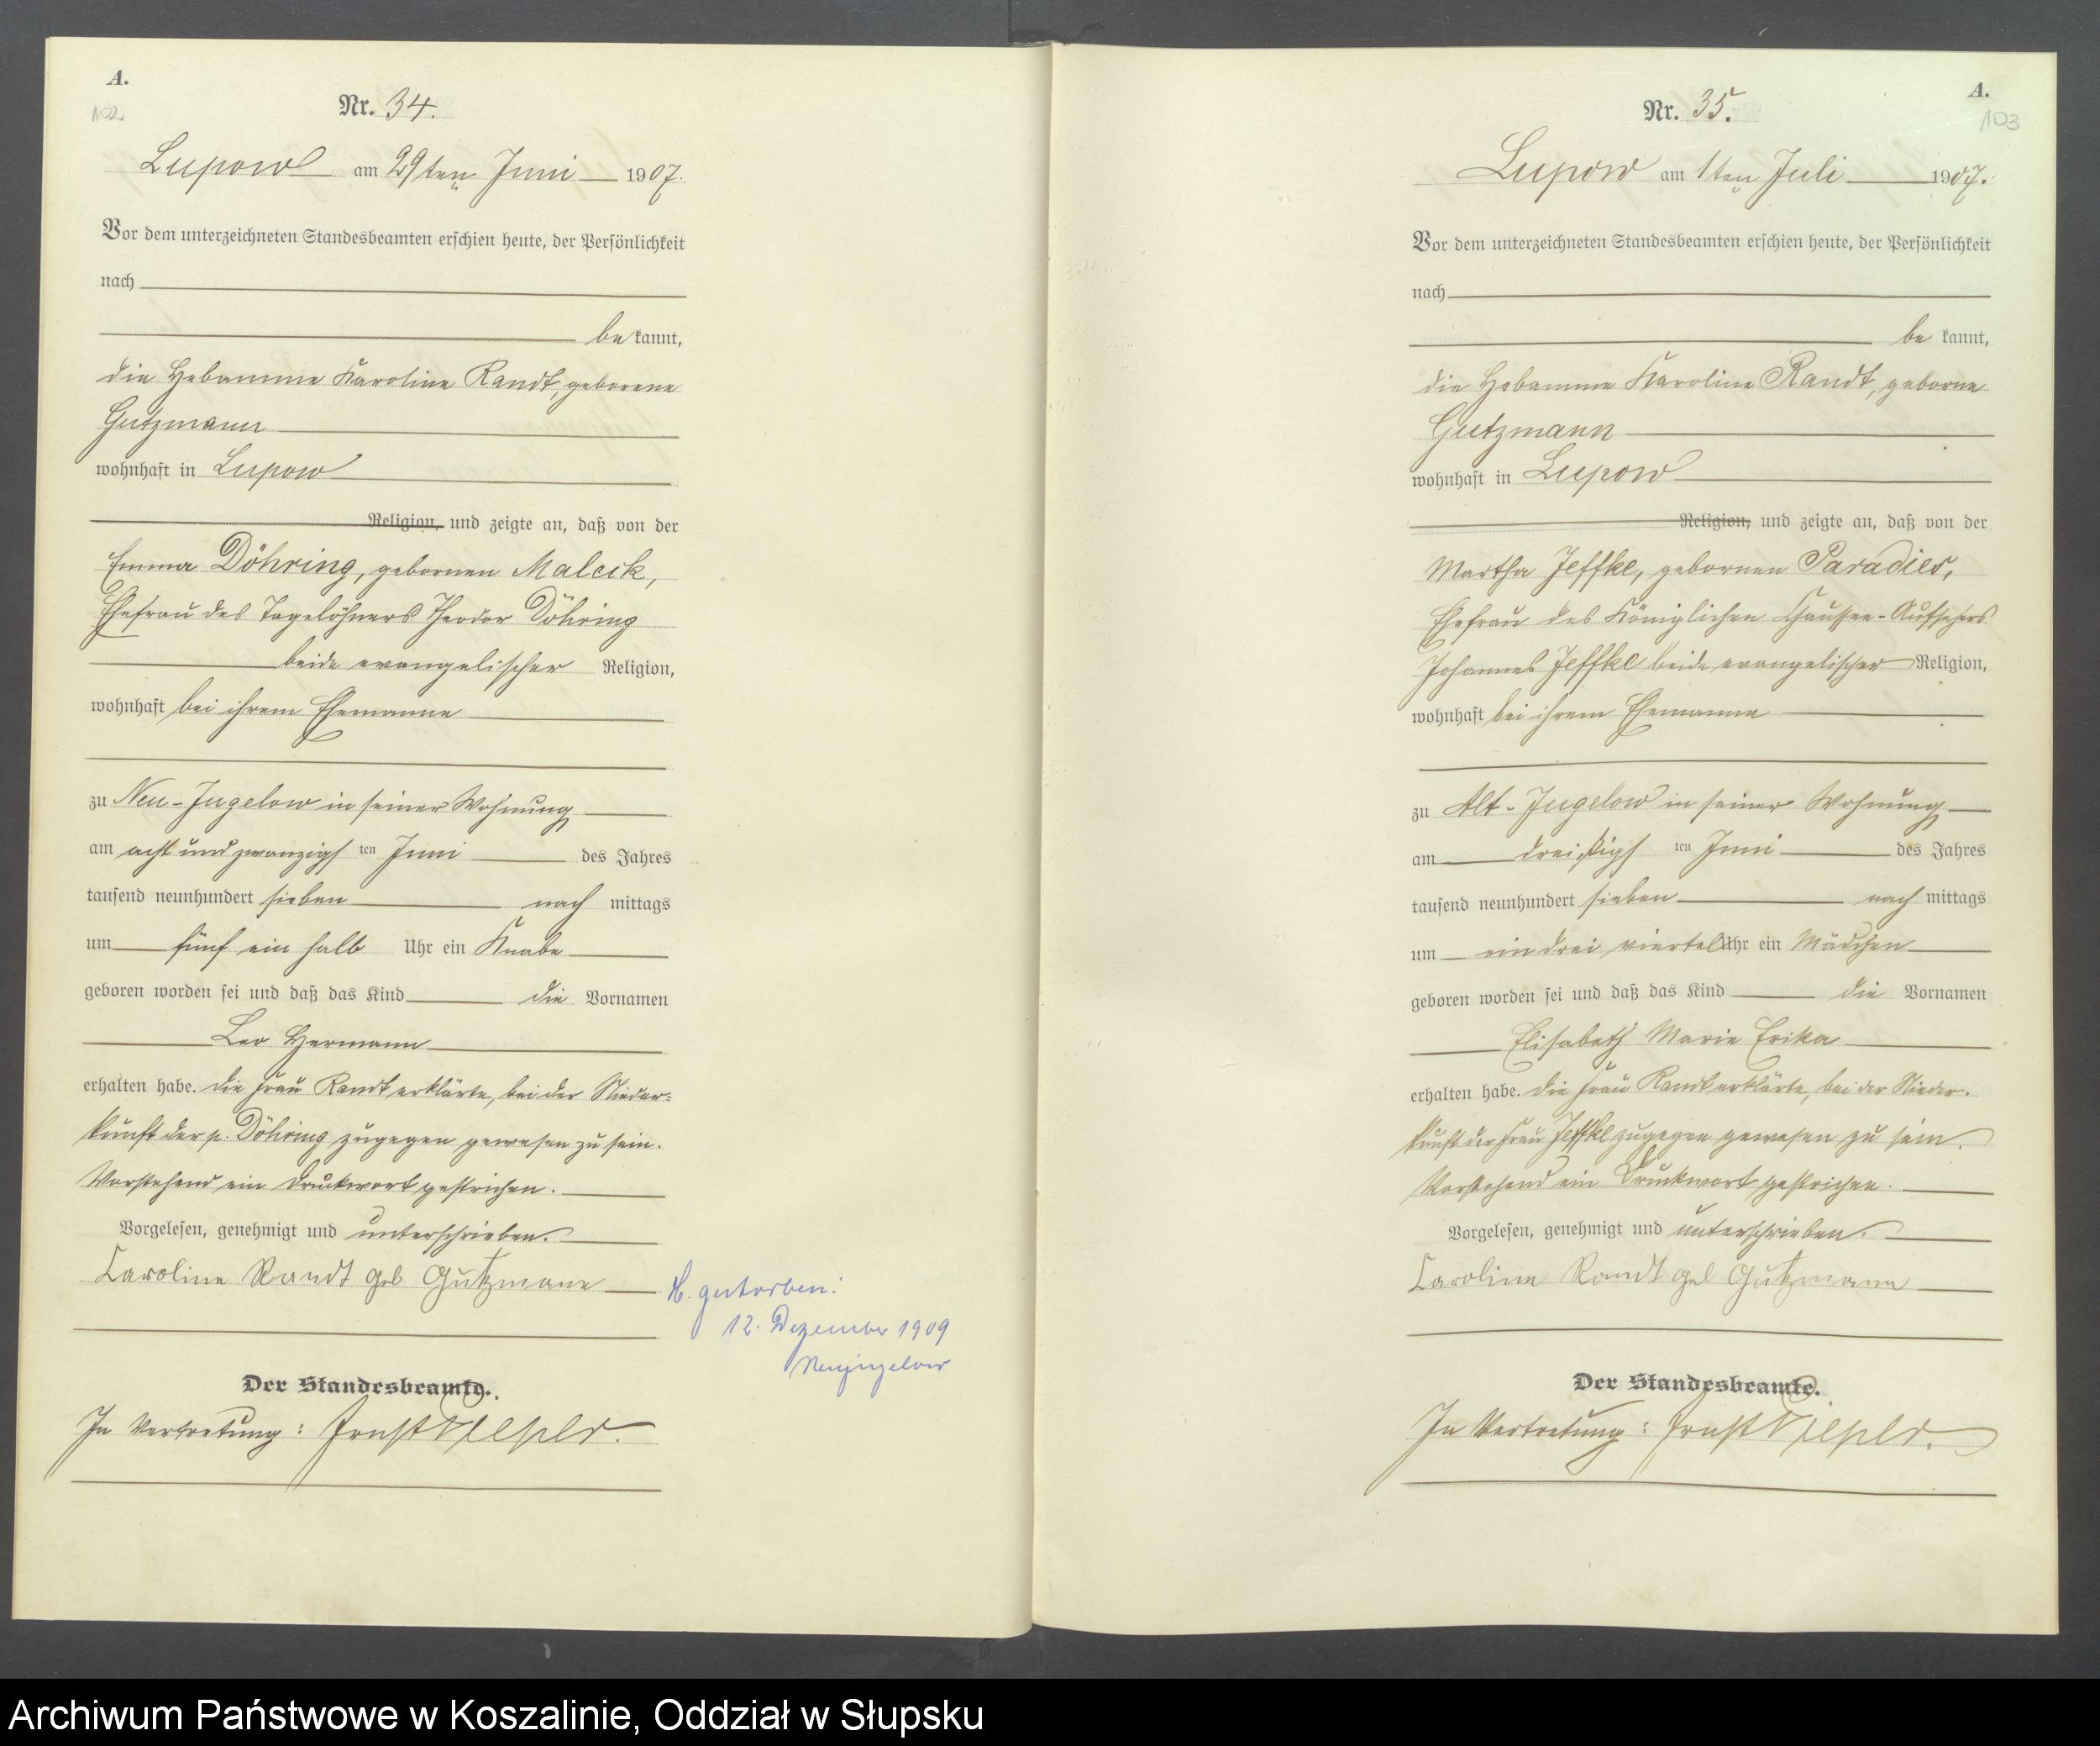 A.
102
Nr. 34.
Lupow am 29ten Juni 1907.
Vor dem unterzeichneten Standesbeamten erschien heute, der Persönlichkeit
nach
be kannt,
die Hebamme Karoline Randt, geborene
Gutzmann
wohnhaft in Lupow
Religion, und zeigte an, daß von der
Emma Döhring, gebornen Malcik,
Ehefrau des Tagelöhners Theodor Döhring
beide evangelischer Religion,
wohnhaft bei ihrem Ehemanne
zu Neu-Jugelow in seiner Wohnung
am acht und zwanzigs ten Juni des Jahres
tausend neunhundert sieben nach mittags
um fünf ein halb Uhr ein Knabe
geboren worden sei und daß das Kind die Vornamen
Leo Hermann
erhalten habe. Die Frau Randt erklärte, bei der Nieder-
kunft der p. Döhring zugegen gewesen zu sein.
Vorstehend ein Druckwort gestrichen.
Vorgelesen, genehmigt und unterschrieben.
Caroline Randt geb Gutzmann
H. gestorben:
12. Dezember 1909
Neujugelow
Der Standesbeamte.
In Vertretung: Ernst
A.
103
Nr. 35.
Lupow am 1ten Juli 1907.
Vor dem unterzeichneten Standesbeamten erschien heute, der Persönlichkeit
nach
be kannt,
die Hebamme Karoline Randt, geborne
Gutzmann
wohnhaft in Lupow
Religion, und zeigte an, daß von der
Martha Jeffke, gebornen Paradies,
Ehefrau des Königlichen Chaussee-Aufsehers
Johannes Jeffke beide evangelischer Religion,
wohnhaft bei ihrem Ehemanne
zu Alt-Jugelow in seiner Wohnung
am dreißigs ten Juni des Jahres
tausend neunhundert sieben nach mittags
um ein drei viertel Uhr ein Mädchen
geboren worden sei und daß das Kind die Vornamen
Elisabeth Marie Erika
erhalten habe. Die Frau Randt erklärte, bei der Nieder-
kunft der Frau Jeffke zugegen gewesen zu sein.
Vorstehend ein Druckwort gestrichen.
Vorgelesen, genehmigt und unterschrieben.
Caroline Randt geb Gutzmann
Der Standesbeamte.
In Vertretung: Ernst
Archiwum Państwowe w Koszalinie, Oddział w Słupsku